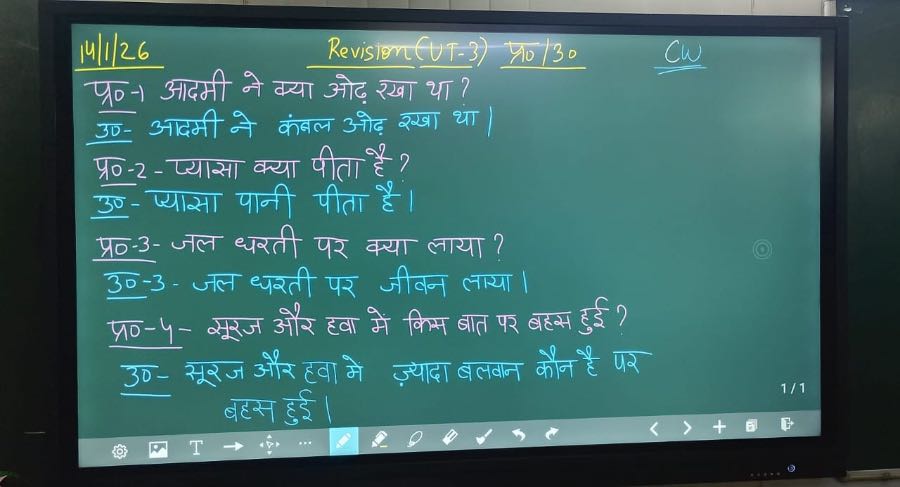 14/1/26 Revision (UT-3) प्र०/30 CW
प्र०-1 आदमी ने क्या ओढ़ रखा था?
उ०- आदमी ने कंबल ओढ़ रखा था।
प्र०-2- प्यासा क्या पीता है?
उ०- प्यासा पानी पीता है।
प्र०-3- जल धरती पर क्या लाया?
उ०-3- जल धरती पर जीवन लाया।
प्र०-4- सूरज और हवा मे किस बात पर बहस हुई?
उ०- सूरज और हवा मे ज़्यादा बलवान कौन है पर
बहस हुई।
1/1
T